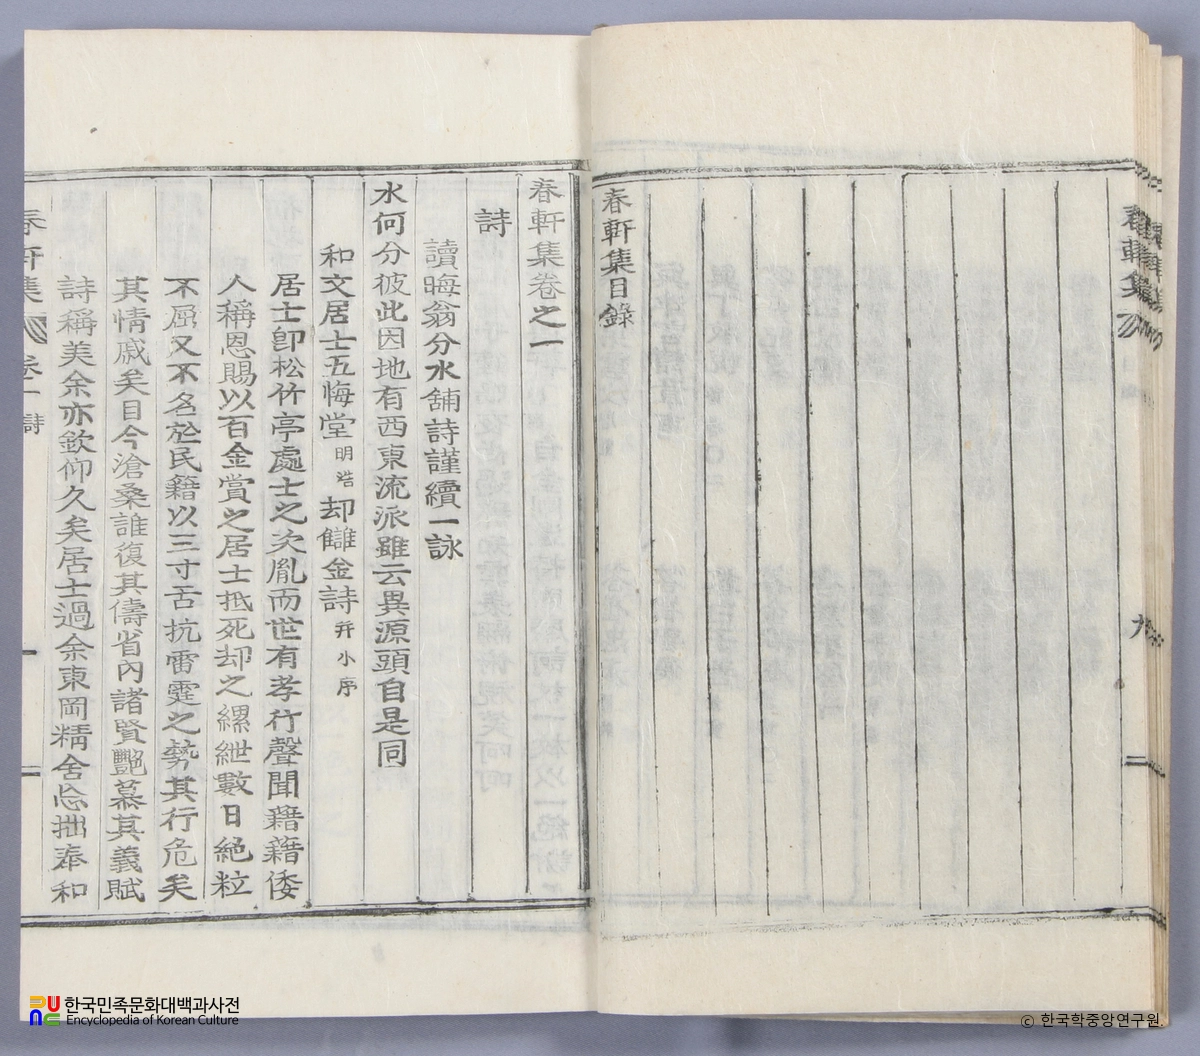 春軒集 九
春軒集目錄
春軒集卷之一
詩
讀晦翁分水舖詩謹續一詠
水何分彼此因地有西東流派雖云異源頭自是同
和文居士五悔堂明浩却讎金詩幷小序
居士卽松竹亭處士之次胤而世有孝行聲聞藉藉倭
人稱恩賜以百金賞之居士抵死却之縲紲數日絶粒
不屈又不名於民籍以三寸舌抗雷霆之勢其行危矣
其情戚矣目今滄桑誰復其儔省內諸賢艷慕其義賦
詩稱美余亦欽仰久矣居士過余東岡精舍忘拙奉和
春軒集 卷一 詩 一
한국민족문화대백과사전
Encyclopedia of Korean Culture
© 한국학중앙연구원